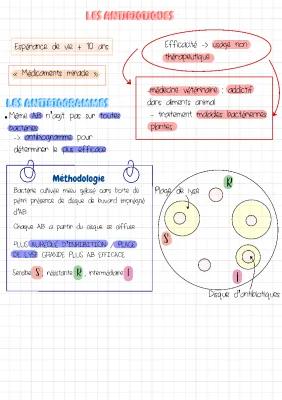 LES ANTIBIOTIQUES
Espérance de vie + 10 ans
« Médicaments miracle »
Efficacité -> usage non
thérapeutique
-médecine vétérinaire : addictif
dans aliments animal
- traitement maladies bactériennes
plantes
LES ANTIBIOGRAMMES
• Même AB n'agit pas sur toutes
bactéries
-> antibiogramme pour
déterminer le plus efficace
Méthodologie
Bactérie cultivée milieu gélosé dans boite de
pétri présence de disque de buvard imprégné
d'AB
Chaque AB a partir du disque se diffuse
PLUS AURÉOLE D'INHIBITION / PLAGE
DE LYSE GRANDE PLUS AB EFFICACE
Sensible S , résistante R , intermédiaire I
Plage de lyse
R
S
I
Disque d'antibiotiques